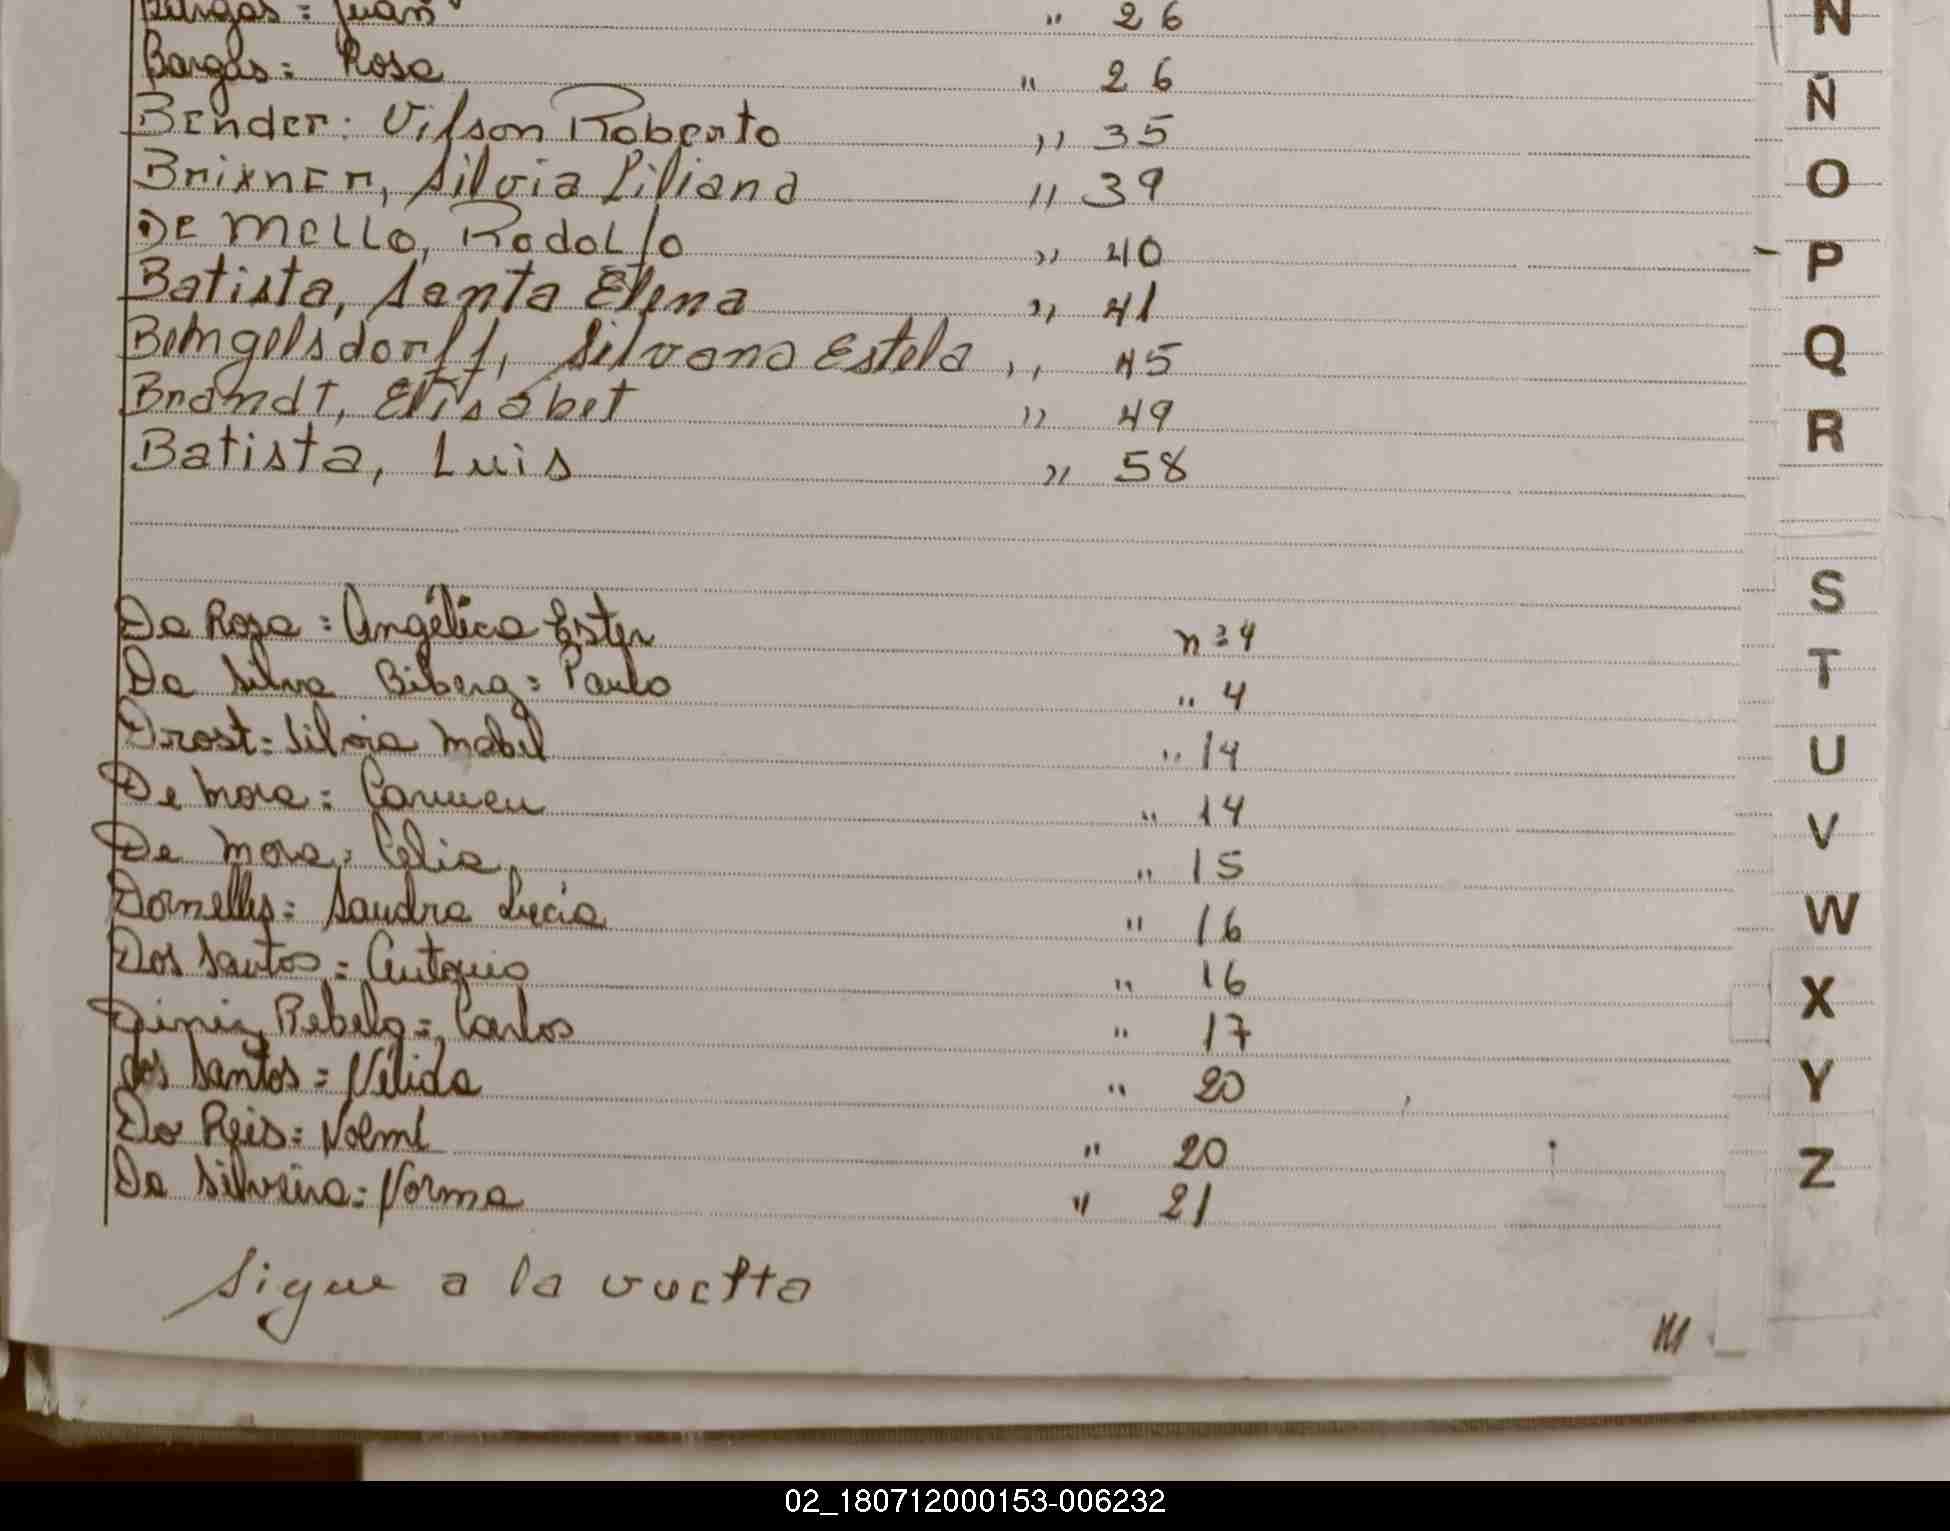 Burgos: Juan " 26
Bargas: Rosa " 26
Bender: Vilson Roberto " 35
Brixner, Silvia Liliana " 39
DE MELLO, Rodolfo " 40
Batista, Santa Elena " 41
Silvana Estela " 45
Brandt, Elisabet " 49
Batista, Luis " 58
Da Rosa: Angélica Ester nº 4
Da Silva Biberg: Paulo " 4
Drost: Silvia Mabel " 14
De Mora: Carmen " 14
De Mora: Celia " 15
Dornelles: Sandra Lucia " 16
Dos Santos: Antonio " 16
Diniz Rebelo: Carlos " 17
dos Santos: Nélida " 20
Do Reis: " 20
Da Silveira: Norma " 21
Sigue a la vuelta
N
Ñ
O
P
Q
R
S
T
U
V
W
X
Y
Z
02_180712000153-006232